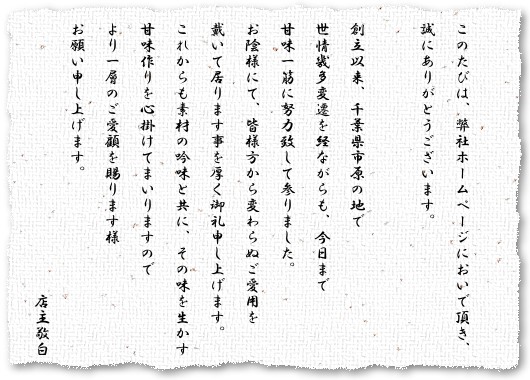 このたびは、弊社ホームページにおいで頂き、
誠にありがとうございます。
創立以来、千葉県市原の地で
世情幾多変遷を経ながらも、今日まで
甘味一筋に努力致して参りました。
お陰様にて、皆様方から変わらぬご愛用を
戴いて居ります事を厚く御礼申し上げます。
これからも素材の吟味と共に、その味を生かす
甘味作りを心掛けてまいりますので
より一層のご愛顧を賜ります様
お願い申し上げます。
店主敬白